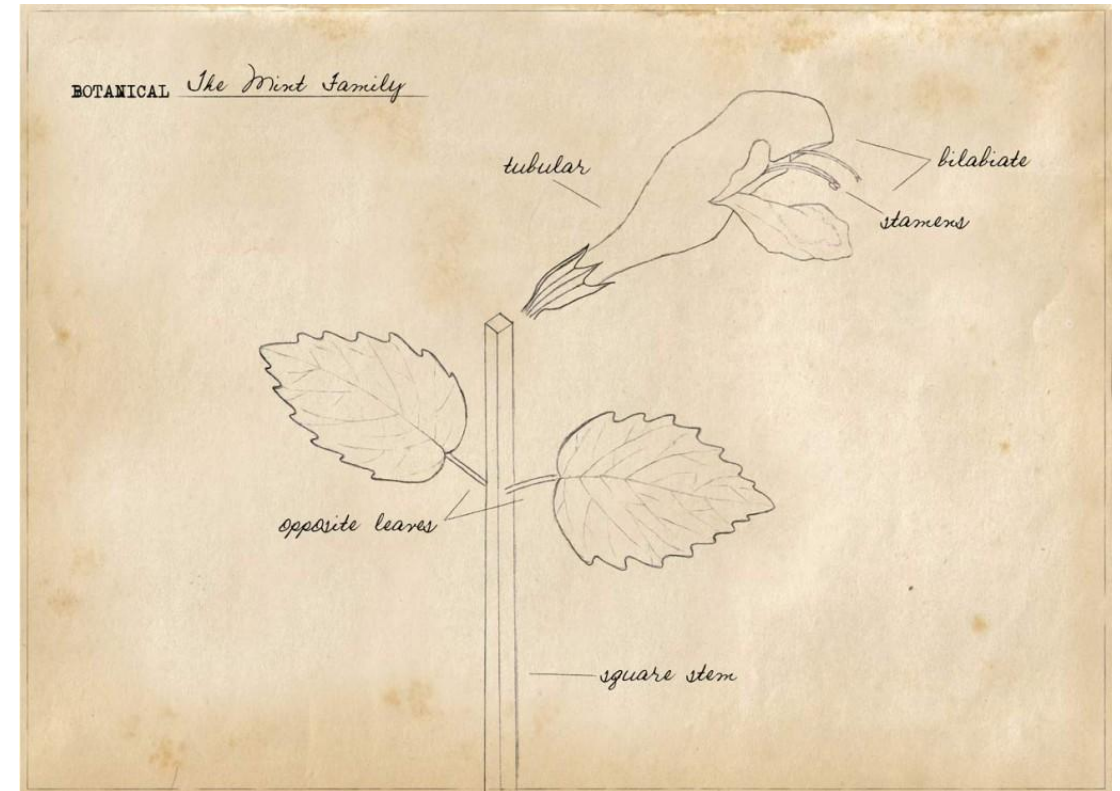 BOTANICAL The Mint Family
tubular
bilabiate
stamens
opposite leaves
square stem